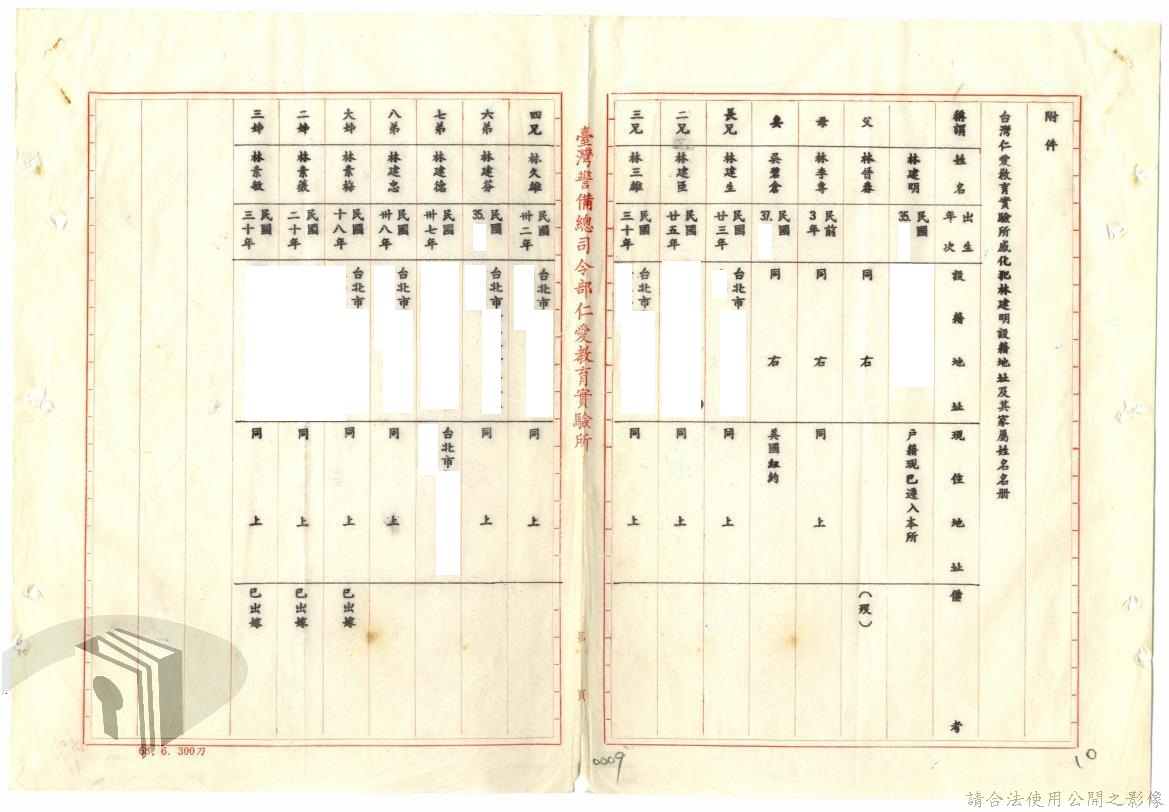 附件
台灣仁愛教育實驗所感化犯林建明設籍地址及其家屬姓名名册
稱謂 姓名 出生年次 設籍地址 現住地址 備考
林建明 民國35. 戶籍現已遷入本所
父 林晉春 同右 (歿)
母 林李專 民前3年 同右 同上
妻 吳碧倉 民國37. 同右 美國紐約
長兄 林建生 民國廿三年 台北市 同上
二兄 林建臣 民國廿五年 同上
三兄 林三雄 民國三十年 台北市 同上
臺灣警備總司令部仁愛教育實驗所
第 頁
四兄 林久雄 民國卅二年 台北市 同上
六弟 林建芬 民國35. 台北市 同上
七弟 林建德 民國卅七年 台北市
八弟 林建忠 民國卅八年 台北市 同上
大姊 林素梅 民國十八年 台北市 同上 已出嫁
二姊 林素薇 民國二十年 同上 已出嫁
三姊 林素敏 民國三十年 同上 已出嫁
68. 6. 300刀
0009
10
請合法使用公開之影像